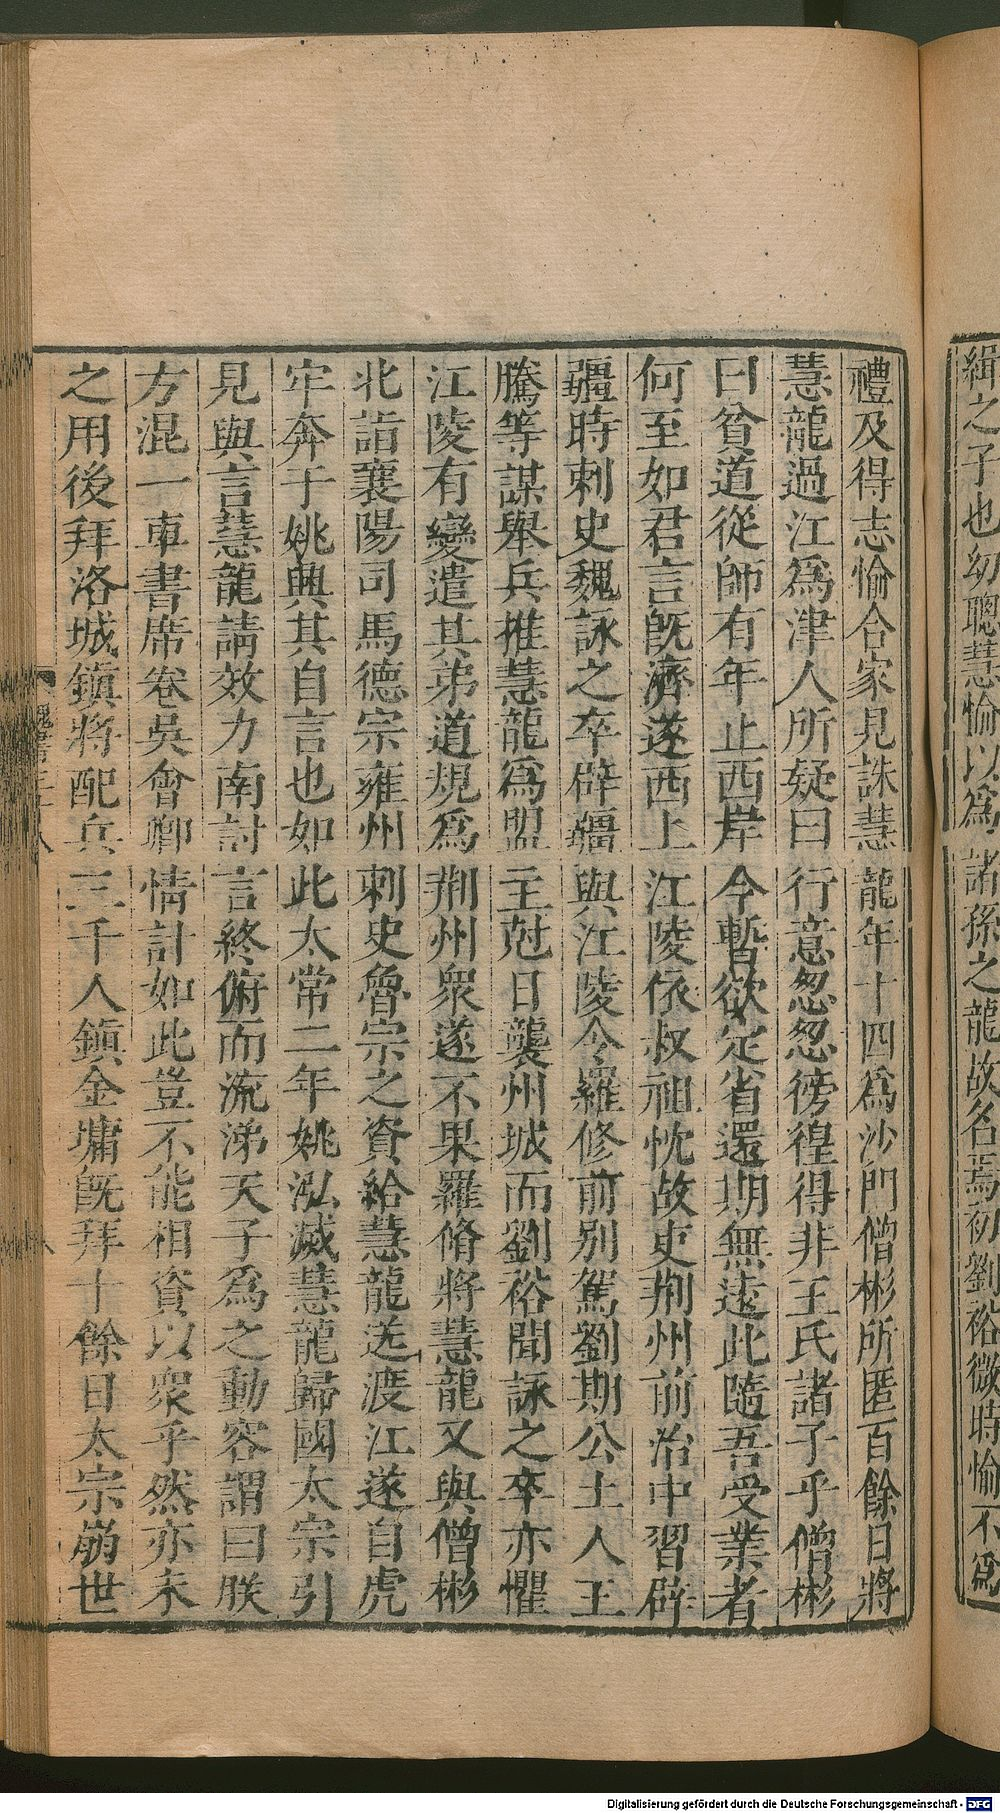 緝之子也幼聰慧愉以為諸孫之龍故名焉初劉裕微時愉不為
禮及得志愉合家見誅慧龍年十四為沙門僧彬所匿百餘日將
慧龍過江為津人所疑曰行意怱怱徬徨得非王氏諸子乎僧彬
曰貧道從師有年止西岸今暫欲定省還期無遠此隨吾受業者
何至如君言旣濟遂西上江陵依叔祖忱故吏荆州前治中習辟
疆時刺史魏詠之卒辟疆與江陵令羅修前別駕劉期公土人王
騰等謀舉兵推慧龍為盟主尅日襲州城而劉裕聞詠之卒亦懼
江陵有變遣其弟道規為荆州衆遂不果羅脩將慧龍又與僧彬
北詣襄陽司馬德宗雍州刺史魯宗之資給慧龍送渡江遂自虎
牢奔于姚興其自言也如此太常二年姚泓滅慧龍歸國太宗引
見與言慧龍請效力南討言終俯而流涕天子為之動容謂曰朕
方混一車書席卷吳會卿情計如此豈不能相資以衆乎然亦未
之用後拜洛城鎮將配兵三千人鎮金墉旣拜十餘日太宗崩世
Digitalisierung gefördert durch die Deutsche Forschungsgemeinschaft - DFG